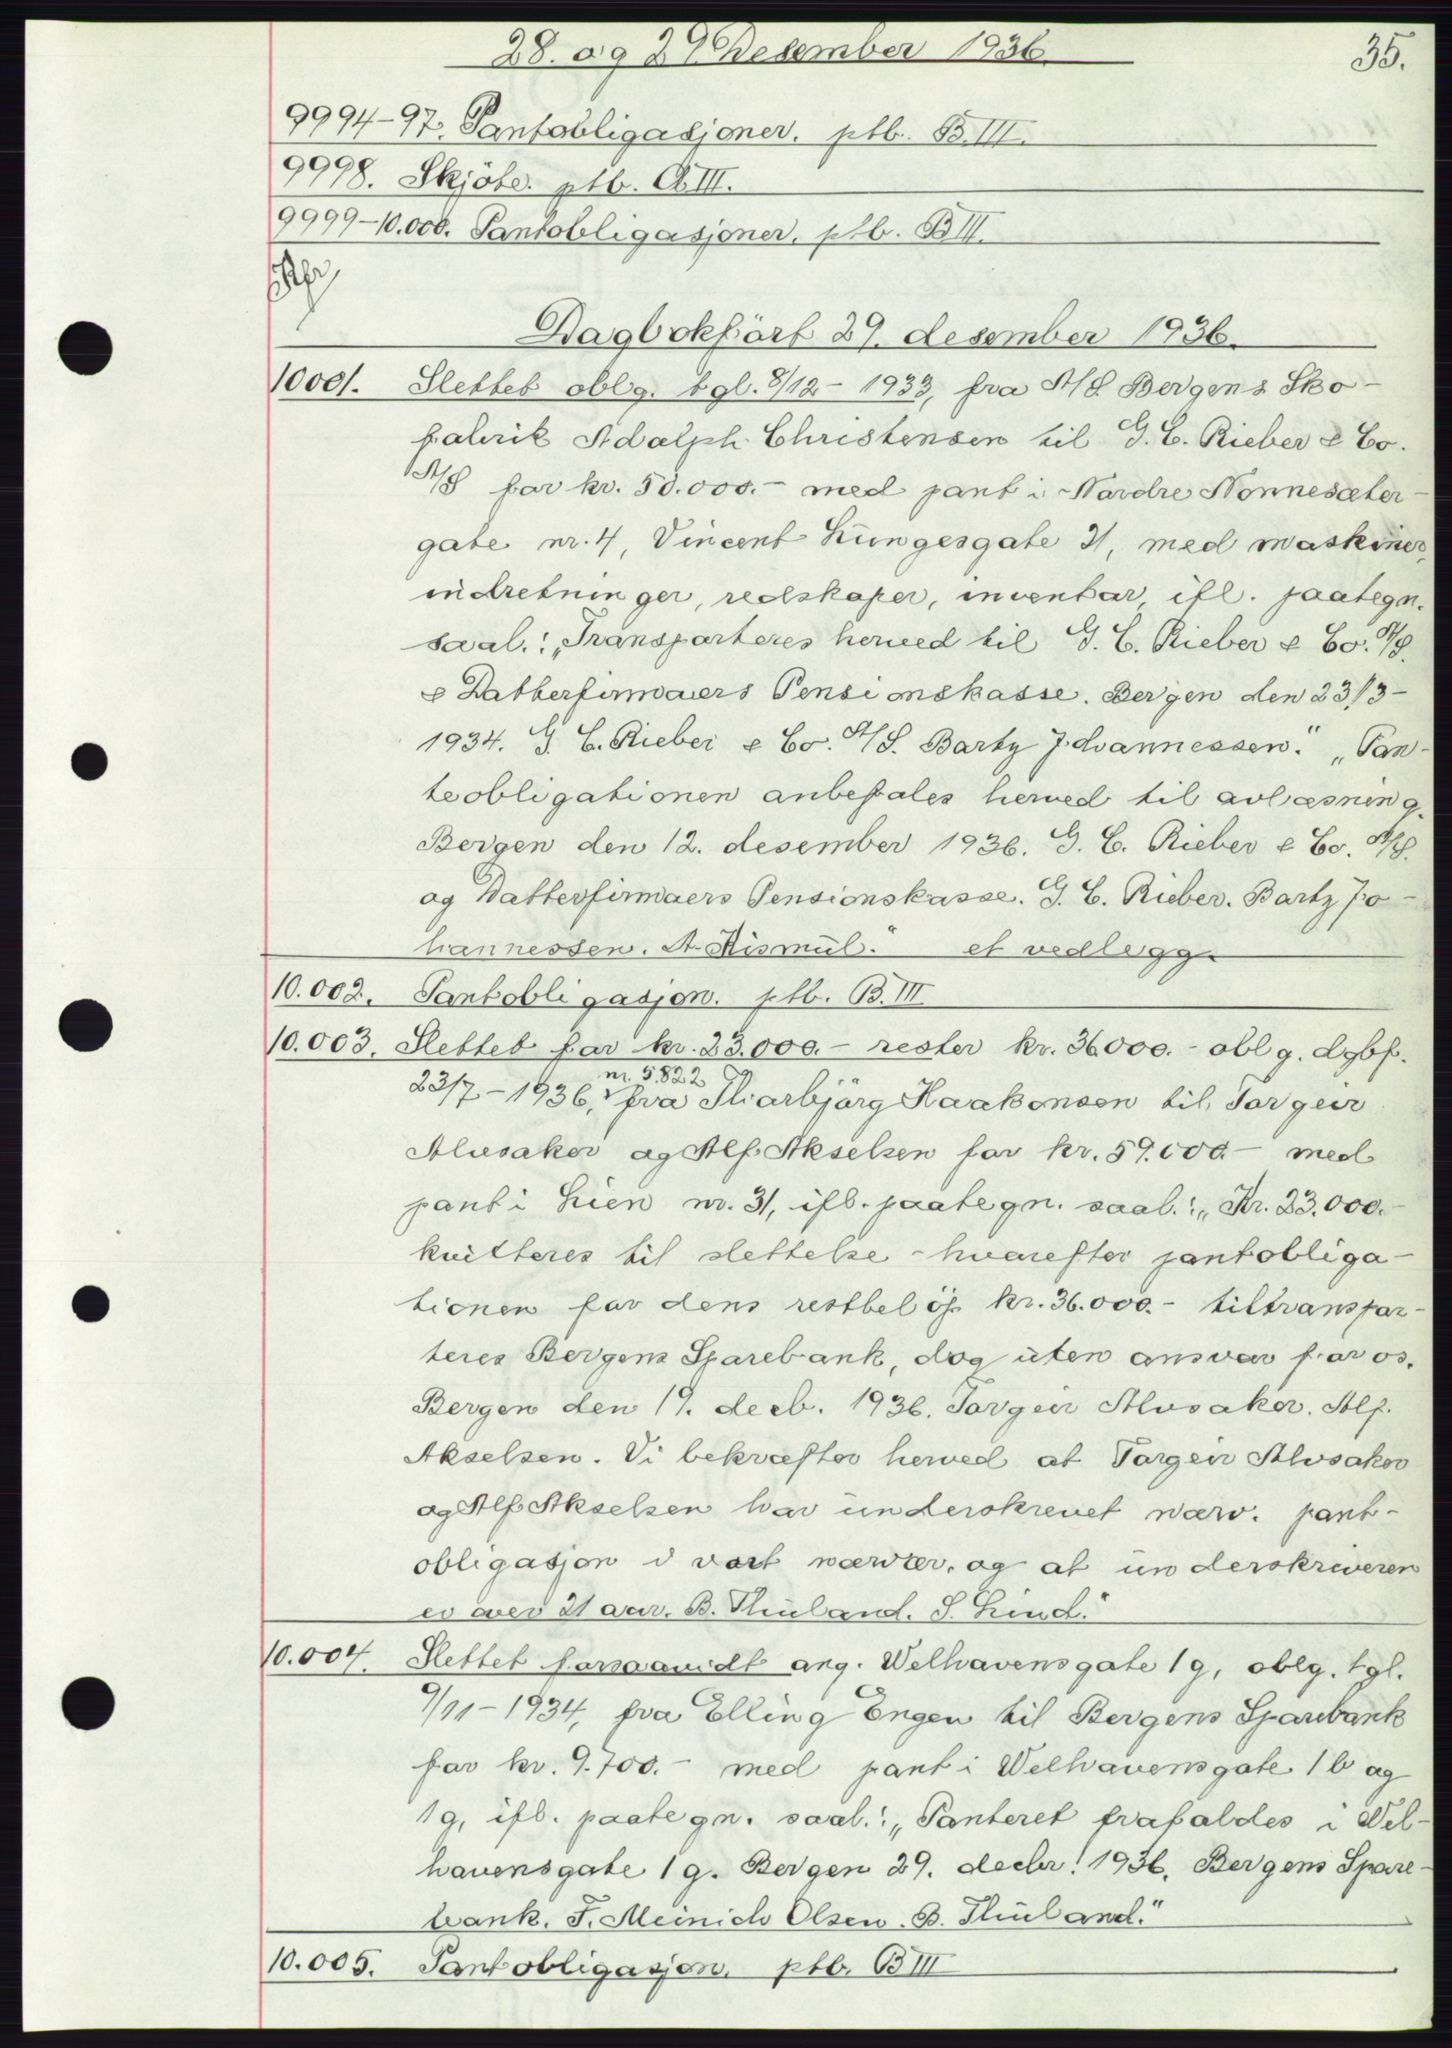 28. og 29 Desember 1936.
35.
9994-97. Pantobligasjoner. ptb. B.III.
9998. Skjöte. ptb. A.III.
9999-10.000. Pantobligasjoner. ptb. B III.
Dagbokfört 29. desember 1936.
10001. Slettet oblg. tgl. 8/12 - 1933, fra A/S Bergens Sko-
fabrik Adolph Christensen til G. C. Rieber & Co.
A/S for kr. 50.000.- med pant i Nordre Nonnesæter-
gate nr. 4, Vincent Lungesgate 21, med maskiner,
indretninger, redskaper, inventar, ifl. paategn.
saal.: „Transporteres herved til G. C. Rieber & Co. A/S.
& Datterfirmaers Pensionskasse. Bergen den 23/3-
1934. G. C. Rieber & Co. A/S. Bartz Johannessen." „Pan-
teobligationen anbefales herved til avlæsning.
Bergen den 12. desember 1936. G. C. Rieber & Co. A/S.
og Datterfirmaers Pensionskasse. G. C. Rieber. Bartz Jo-
hannessen. A. Rismul." et vedlegg.
10.002. Pantobligasjon. ptb. B.III
10.003. Slettet for kr. 23.000.- rester kr. 36000.- oblg. dgbf.
nr. 5822
23/7 - 1936, fra Thorbjörg Haakonsen til Torgeir
Alvsaker og Alf Akselsen for kr. 59.000.- med
pant i Lien nr. 31, ifl. paategn. saal.: „Kr. 23.000.-
kvitteres til slettelse - hvorefter pantobliga-
tionen for dens restbelöp kr. 36.000.- tiltranspor-
teres Bergens Sparebank, dog uten ansvar for os.
Bergen den 19. decb. 1936. Torgeir Alvsaker. Alf.
Akselsen. Vi bekræfter herved at Torgeir Alvsaker
og Alf Akselsen har underskrevet nærv. pant-
obligasjon i vort nærvær, og at underskriveren
er over 21 aar. B. Thuland. S. Lind."
10.004. Slettet forsaavidt ang. Welhavensgate 1g, oblg. tgl.
9/11 - 1934, fra Elling Engen til Bergens Sparebank
for kr. 9.700.- med pant i Welhavensgate 1b og
1g, ifl. paategn. saal.: „Panteret frafaldes i Wel-
havensgate 1g. Bergen 29. decbr. 1936. Bergens Spare-
bank. F. Meinich Olsen. B. Thuland."
10.005. Pantobligasjon. ptb. B III